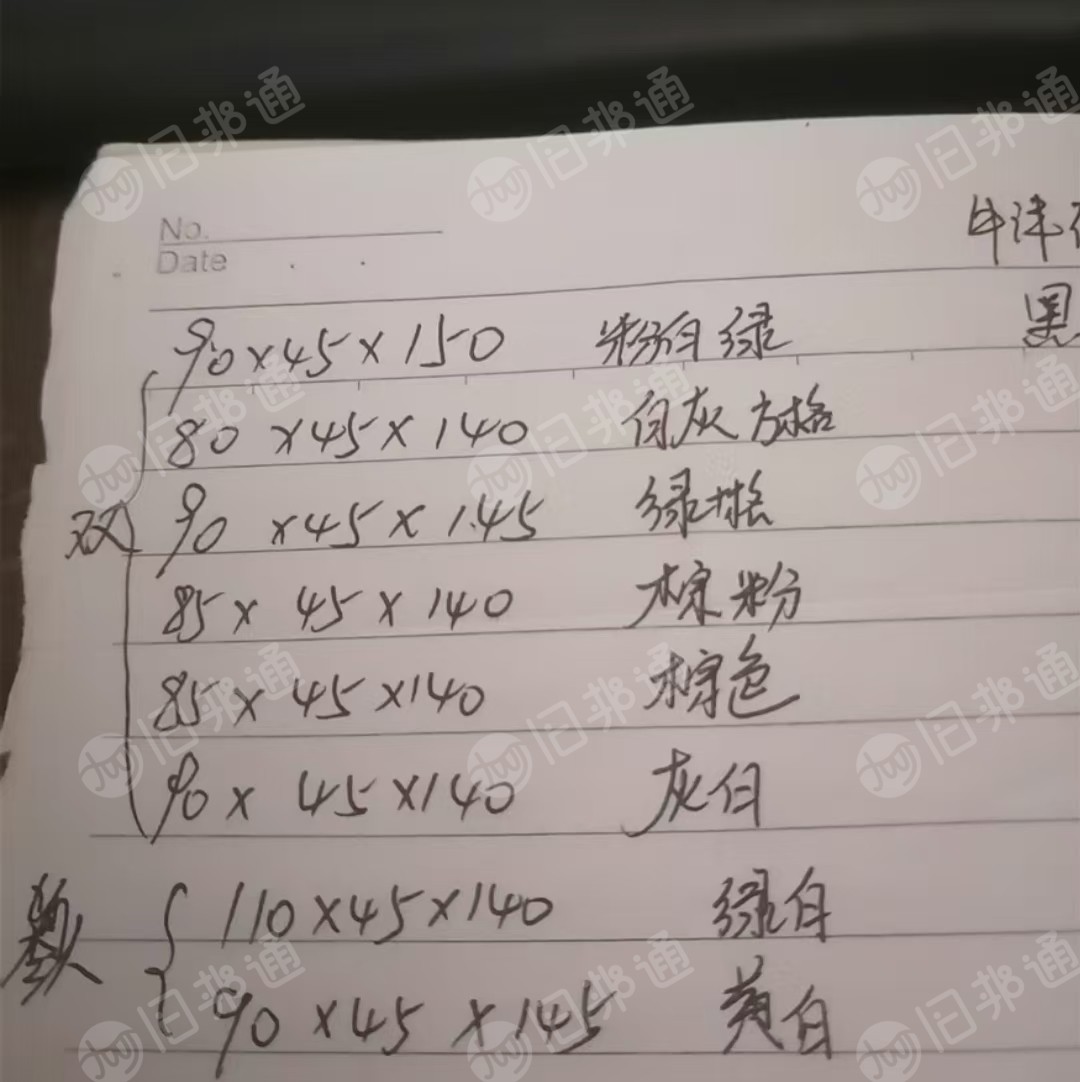 No.
Date
牛津
黑
90×45×150 粉白绿
80×45×140 白灰方格
双 90×45×145 绿格
85×45×140 棕粉
85×45×140 棕色
90×45×140 灰白
110×45×140 绿白
90×45×145 黄白
旧邦通